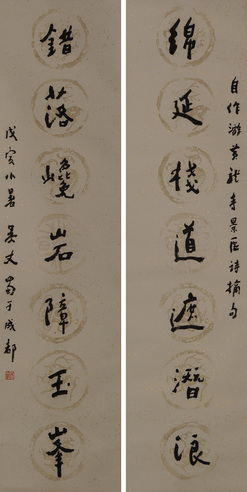 自作游黄龙寺景区诗摘句
绵延栈道遮潛浪
錯落巉岩障玉峯
戊寅小暑 吴丈蜀于成都